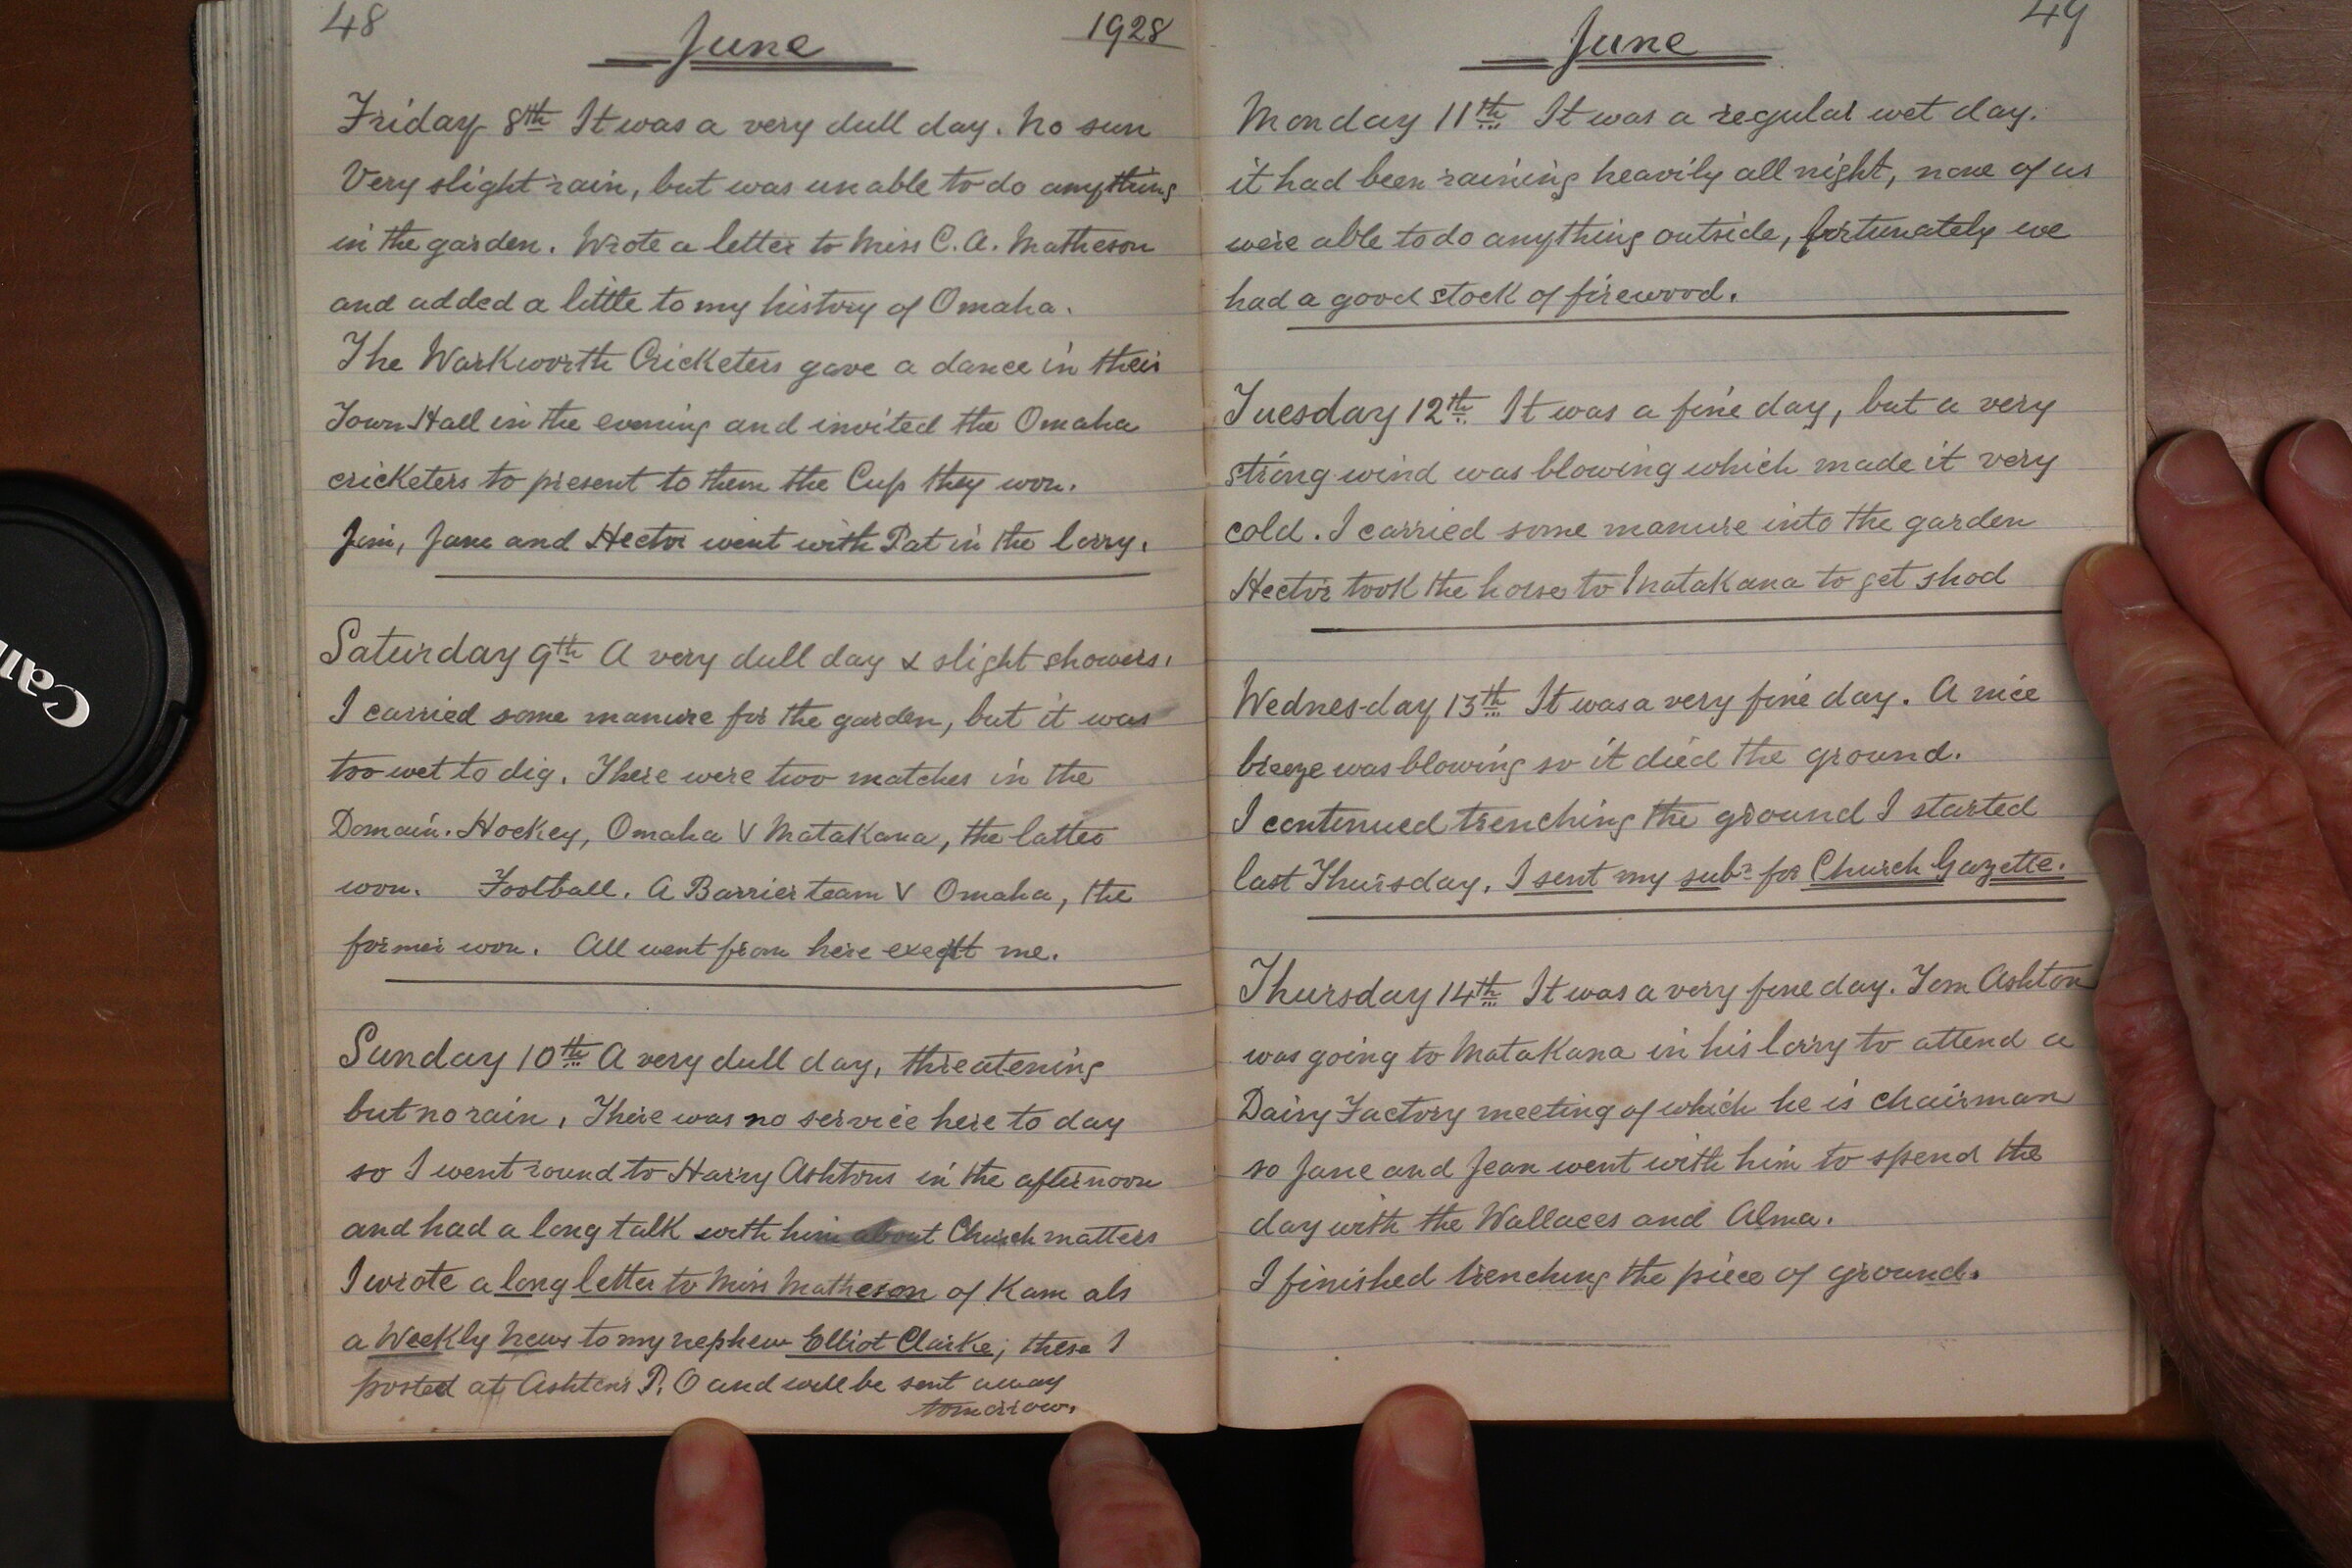 48 June 1928
Friday 8th It was a very dull day. No sun
Very slight rain, but was unable to do anything
in the garden. Wrote a letter to Miss C. A. Matheson
and added a little to my history of Omaha.
The Warkworth Cricketers gave a dance in their
Town Hall in the evening and invited the Omaha
cricketers to present to them the Cup they won.
Jim, Jane and Hector went with Pat in the lorry.
Saturday 9th A very dull day & slight showers.
I carried some manure for the garden, but it was
too wet to dig. There were two matches in the
Domain. Hockey, Omaha V Matakana, the latter
won. Football. A Barrier team V Omaha, the
former won. All went from here except me.
Sunday 10th A very dull day, threatening
but no rain. There was no service here to day
so I went round to Harry Ashtons in the afternoon
and had a long talk with him about Church matters
I wrote a long letter to Miss Matheson of Kam als
a Weekly News to my nephew Elliot Clarke, these I
posted at Ashton's P. O and will be sent away
tomorrow.
June 49
Monday 11th It was a regular wet day.
it had been raining heavily all night, none of us
were able to do anything outside, fortunately we
had a good stock of firewood.
Tuesday 12th It was a fine day, but a very
strong wind was blowing which made it very
cold. I carried some manure into the garden
Hector took the horse to Matakana to get shod
Wednesday 13th It was a very fine day. A nice
breeze was blowing so it dried the ground.
I continued trenching the ground I started
last Thursday. I sent my subn for Church Gazette.
Thursday 14th It was a very fine day. Tom Ashton
was going to Matakana in his lorry to attend a
Dairy Factory meeting of which he is chairman
so Jane and Jean went with him to spend the
day with the Wallaces and Alma.
I finished trenching the piece of ground.
Can